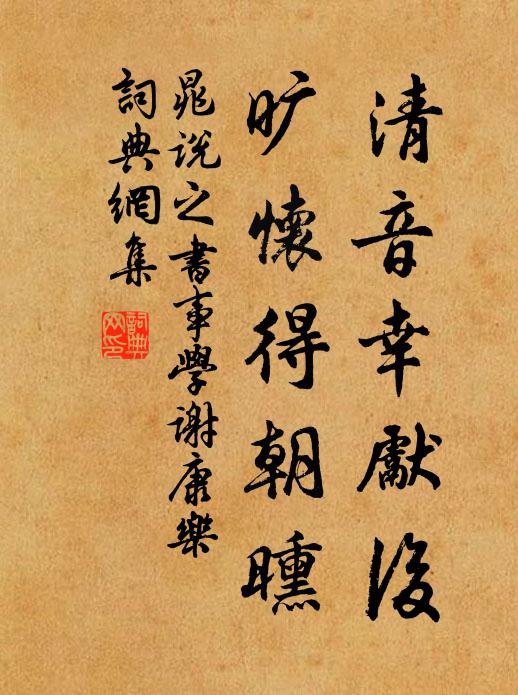 清音幸獻後
旷懷得朝曛
晁說之書事學谢康樂
詞典網集
詞典网印